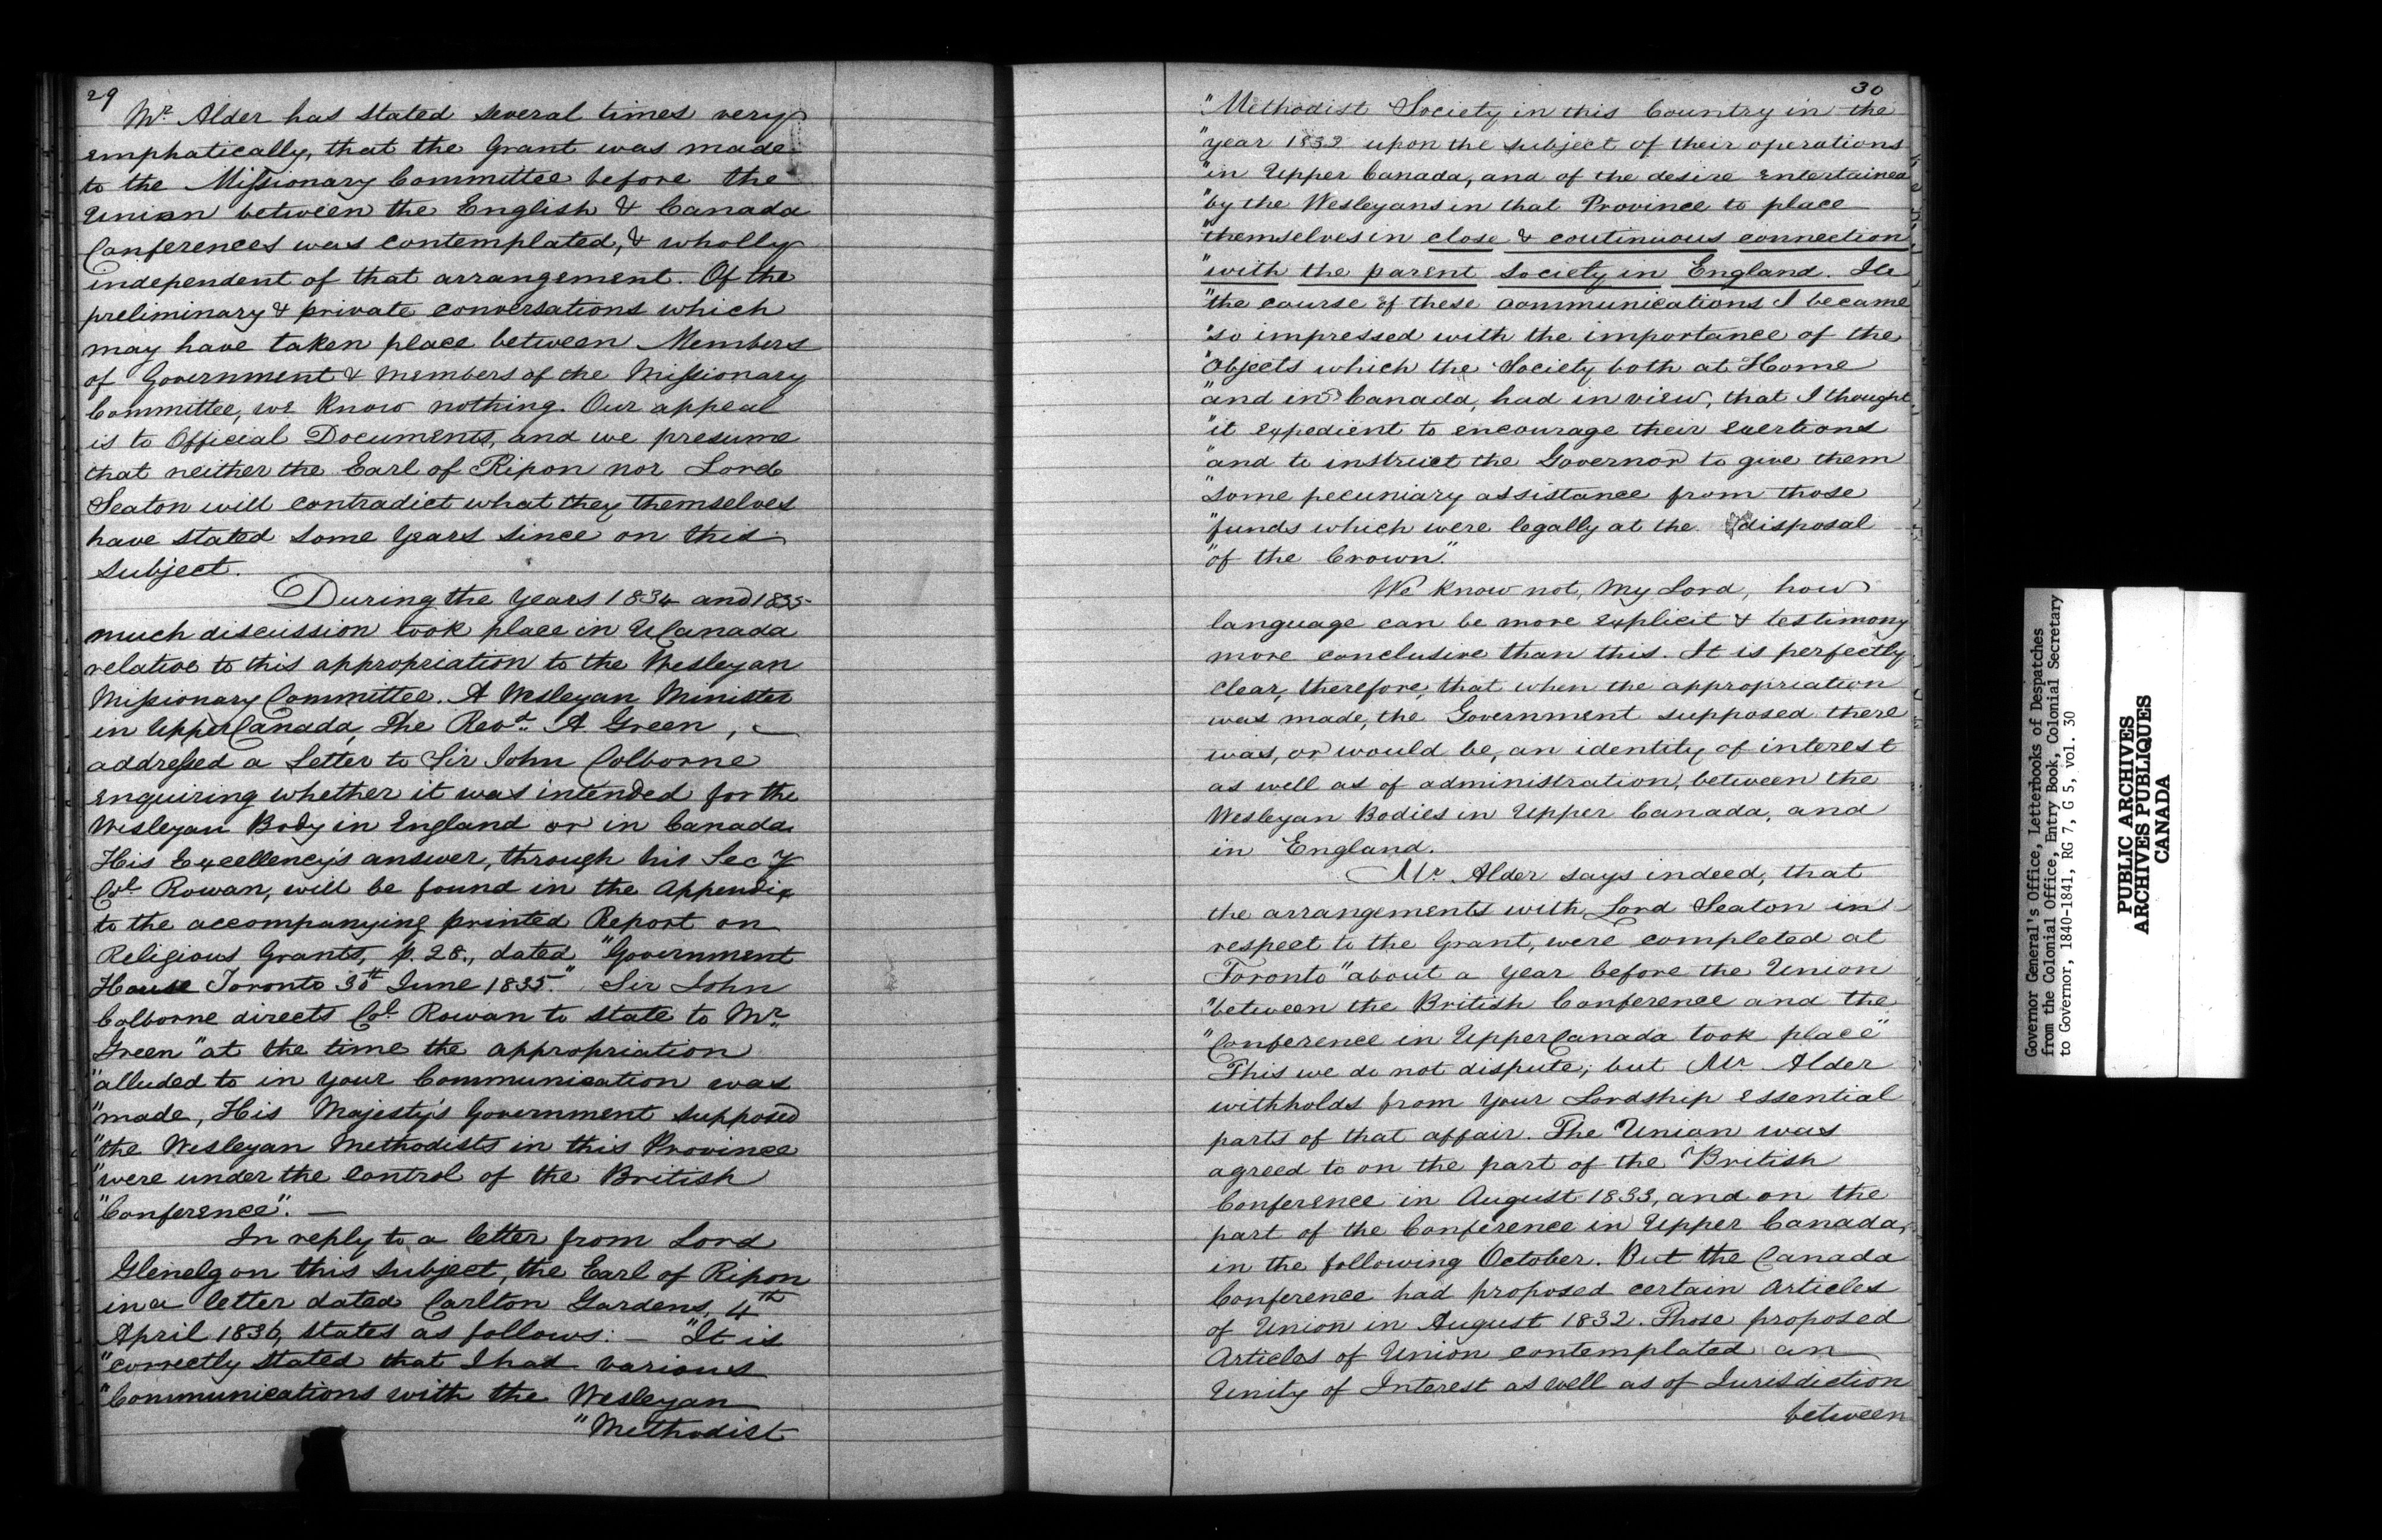 29
Mr. Alder has stated several times very
emphatically, that the Grant was made
to the Missionary Committee before the
Union between the English & Canada
Conferences was contemplated, & wholly
independent of that arrangement. Of the
preliminary & private conversations which
may have taken place between Members
of Government & Members of the Missionary
Committee, we know nothing. Our appeal
is to Official Documents, and we presume
that neither the Earl of Ripon nor Lord
Seaton will contradict what they themselves
have stated some years since on this
subject.
During the years 1834 and 1835
much discussion took place in U Canada
relative to this appropriation to the Wesleyan
Missionary Committee. A Wesleyan Minister
in Upper Canada, The Revd. A Green,
addressed a Letter to Sir John Colborne
enquiring whether it was intended for the
Wesleyan Body in England or in Canada.
His Excellency's answer, through his Secy
Col. Rowan, will be found in the Appendix
to the accompanying printed Report on
Religious Grants, p. 28., dated "Government
House Toronto 30th June 1835." Sir John
Colborne directs Col. Rowan to state to Mr.
Green "at the time the appropriation
"alluded to in your Communication was
"made, His Majesty's Government supposed
"the Wesleyan Methodists in this Province
"were under the control of the British
"Conference". —
In reply to a letter from Lord
Glenelg on this subject, the Earl of Ripon
in a letter dated Carlton Gardens, 4th
April 1836, states as follows: — "It is
"correctly stated that I had various
"Communications with the Wesleyan
"Methodist
30
"Methodist Society in this Country in the
"year 1832 upon the subject of their operations
"in Upper Canada, and of the desire entertained
"by the Wesleyans in that Province to place
"themselves in close & continuous connection
"with the parent Society in England. In
"the course of these communications I became
"so impressed with the importance of the
"objects which the Society both at Home
"and in Canada, had in view, that I thought
"it expedient to encourage their exertions
"and to instruct the Governor to give them
"some pecuniary assistance from those
"funds which were legally at the disposal
"of the Crown".
We know not, My Lord, how
language can be more explicit & testimony
more conclusive than this. It is perfectly
clear, therefore, that when the appropriation
was made, the Government supposed there
was, or would be, an identity of interest
as well as of administration, between the
Wesleyan Bodies in Upper Canada, and
in England.
Mr Alder says indeed, that
the arrangements with Lord Seaton in
respect to the Grant, were completed at
Toronto "about a year before the Union
"between the British Conference and the
"Conference in Upper Canada took place"
This we do not dispute; but Mr Alder
withholds from your Lordship essential
parts of that affair. The Union was
agreed to on the part of the British
Conference in August 1833, and on the
part of the Conference in Upper Canada,
in the following October. But the Canada
Conference had proposed certain Articles
of Union in August 1832. Those proposed
Articles of Union contemplated an
Unity of Interest as well as of Jurisdiction
between
Governor General's Office, Letterbooks of Despatches
from the Colonial Office, Entry Book, Colonial Secretary
to Governor, 1840-1841, RG 7, G 5, vol. 30
PUBLIC ARCHIVES
ARCHIVES PUBLIQUES
CANADA